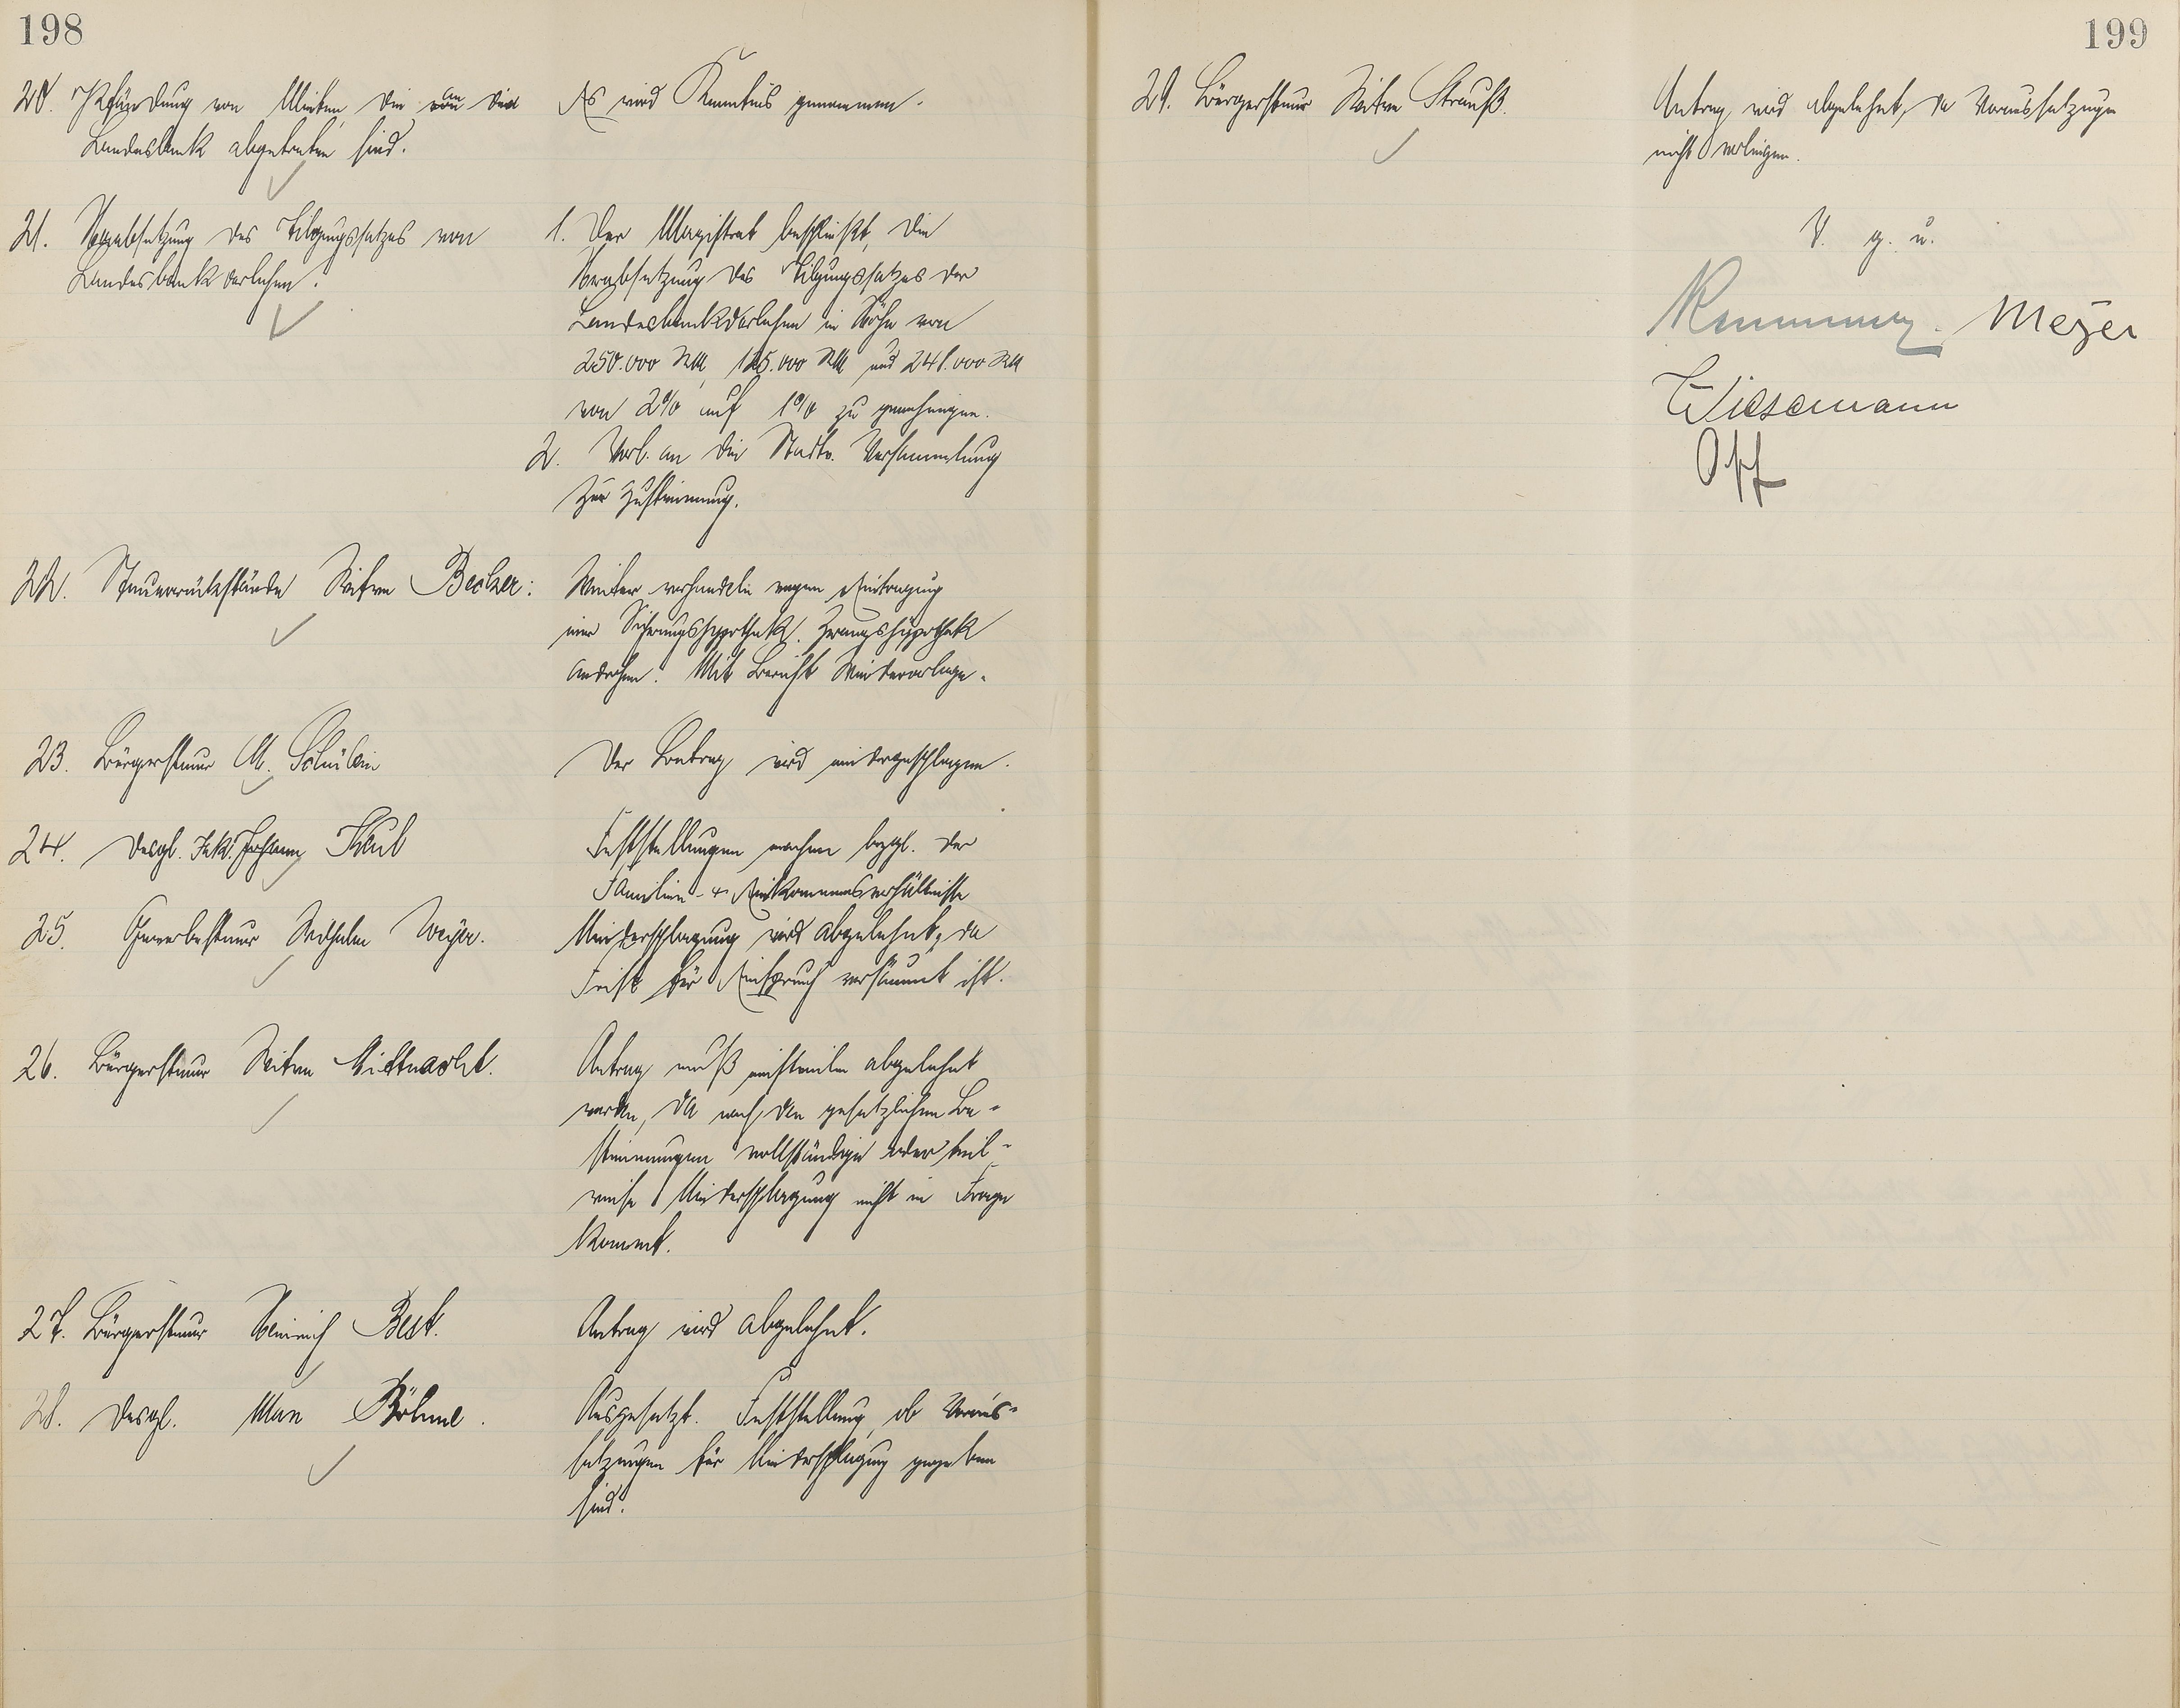 198
20. Pfändung von Mieten, die an die
Landesbank abgetreten sind.
Es wird Kenntnis genommen.
21. Herabsetzung des Tilgungssatzes von
Landesbankdarlehen.
1. Der Magistrat beschließt, die
Herabsetzung des Tilgungssatzes der
Landesbankdarlehen in Höhe von
250.000 RM, 125.000 RM und 248.000 RM
von 2% auf 1% zu genehmigen.
2. Vorl. an die Stadtv. Versammlung
zur Zustimmung.
22. Steuerrückstände Witwe Becker:
Weiter verhandeln wegen Eintragung
einer Sicherungshypothek. Zwangshypothek
androhen. Mit Bericht Wiedervorlage.
23. Bürgersteuer M.
Der Betrag wird niedergeschlagen.
24. Desgl. Johann Kaul
Feststellungen machen bezgl. der
Familien- & Einkommensverhältnisse
25. Gewerbesteuer Wilhelm Weyer.
Niederschlagung wird abgelehnt, da
Frist für Einspruch versäumt ist.
26. Bürgersteuer Witwe Mittnacht.
Antrag muß einstweilen abgelehnt
werden, da nach den gesetzlichen Be-
stimmungen vollständige oder teil-
weise Niederschlagung nicht in Frage
kommt.
27. Bürgersteuer Heinrich Best.
Antrag wird abgelehnt.
28. Desgl. Max Böhme.
Ausgesetzt. Feststellung, ob Voraus-
setzungen für Niederschlagung gegeben
sind.
199
29. Bürgersteuer Witwe Strauß.
Antrag wird abgelehnt, da Voraussetzungen
nicht vorliegen.
V. g. u.
Meyer
Wiesemann
Opf